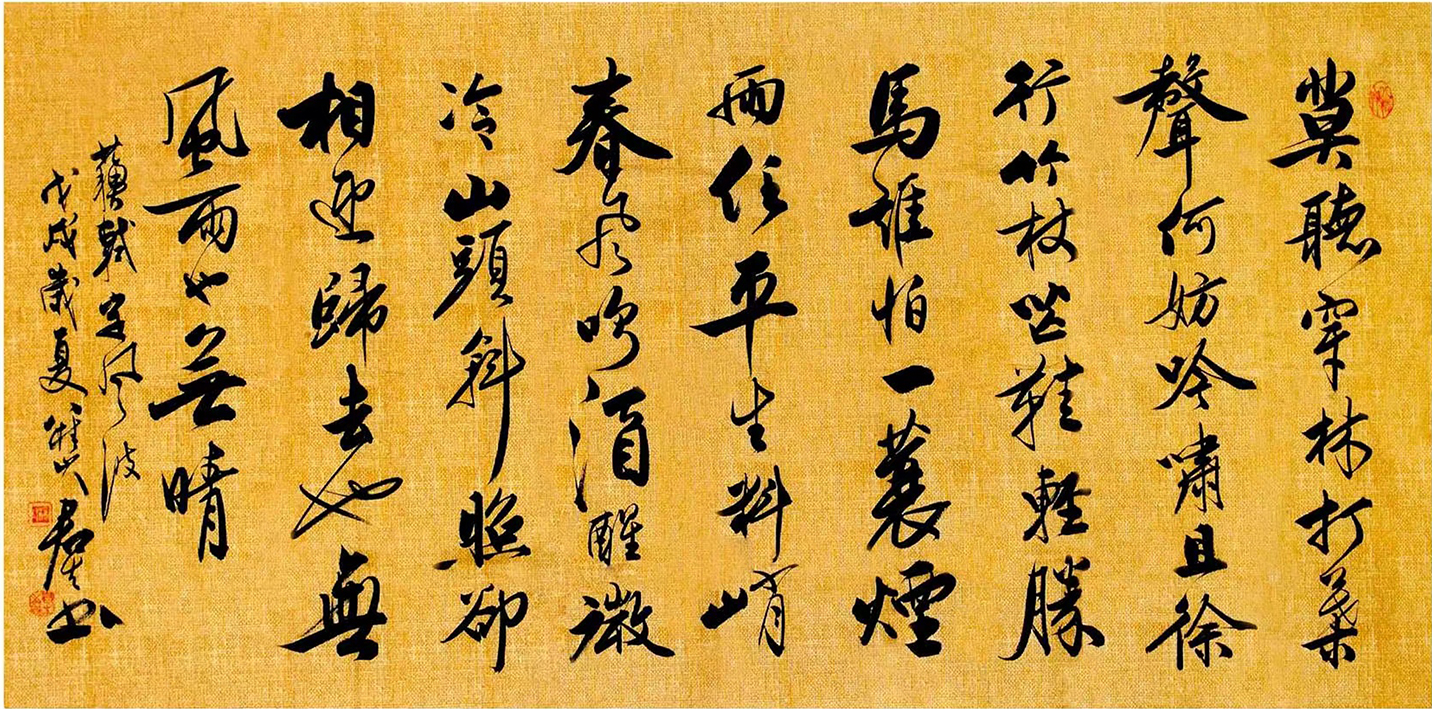 莫聽穿林打葉
聲何妨吟嘯且徐
行竹杖芒鞋輕勝
馬誰怕一蓑煙
雨任平生料峭
春風吹酒醒微
冷山頭斜照卻
相迎歸去也無
風雨也無晴
蘇軾定風波
戊戌歲夏 书